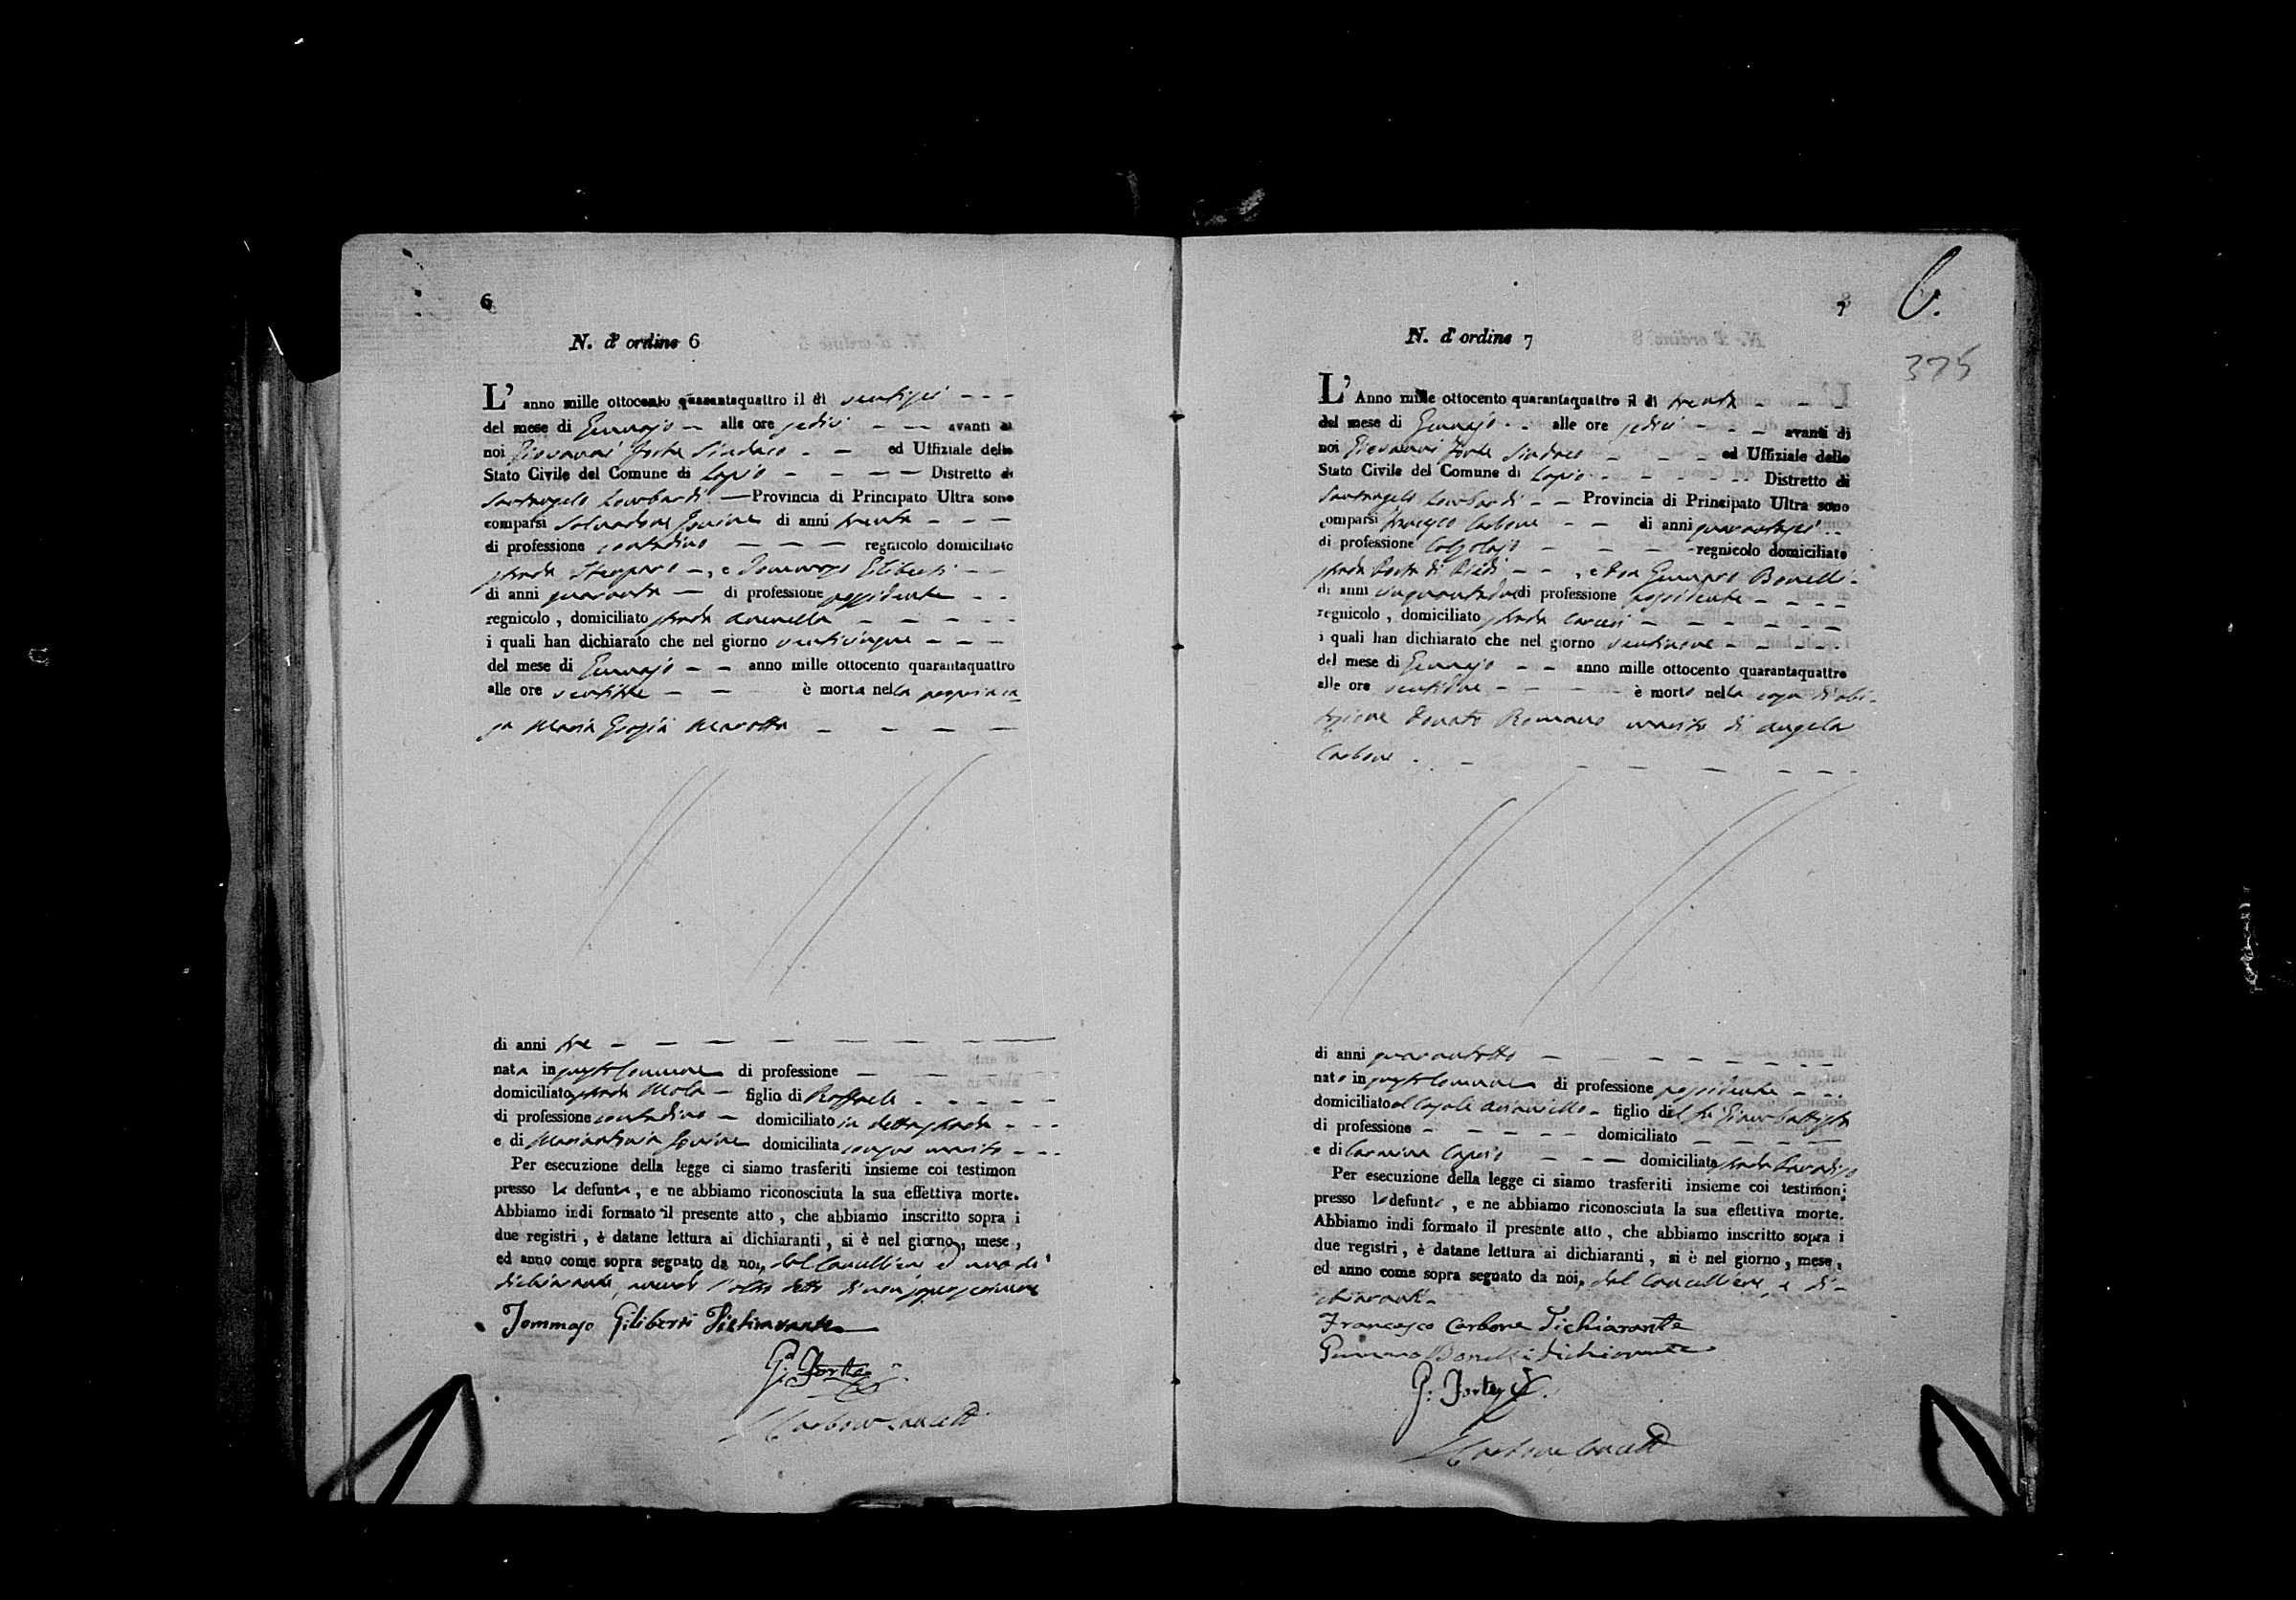 6
N. d' ordine 6
L' anno mille ottocento quarantaquattro il di ventisei
del mese di Gennajo alle ore sedici avanti di
noi Giovanni Forte Sindaco ed Uffiziale dello
Stato Civile del Comune di Lapio Distretto di
Santangelo Lombardi Provincia di Principato Ultra sono
comparsi Salvadore Iovine di anni trenta
di professione contadino regnicolo domiciliato
strada , e Tommaso Giliberti
di anni quaranta di professione possidente
regnicolo , domiciliato strada
i quali han dichiarato che nel giorno venticinque
del mese di Gennajo anno mille ottocento quarantaquattro
alle ore ventitre è morta nella propria ca
sa Maria Grazia Marotta
di anni tre
nata in questo Comune di professione
domiciliato strada Mola figlio di Raffaele
di professione contadino domiciliato in detta strada
e di Mariantonia Iovine domiciliata con suo marito
Per esecuzione della legge ci siamo trasferiti insieme coi testimon
presso la defunta , e ne abbiamo riconosciuta la sua effettiva morte.
Abbiamo indi formato il presente atto , che abbiamo inscritto sopra i
due registri , è datane lettura ai dichiaranti , si è nel giorno , mese ,
ed anno come sopra segnato da noi, dal Cancelliere ed uno de'
dichiaranti, avendo l'altro detto di non saper scrivere
Tommaso Giliberti Dichiarante
G. Forte
Carbone Cancell.
7
6.
375
N. d' ordine 7
L' Anno mille ottocento quarantaquattro il di trenta
del mese di Gennajo alle ore sedici avanti di
noi Giovanni Forte Sindaco ed Uffiziale dello
Stato Civile del Comune di Lapio Distretto di
Santangelo Lombardi Provincia di Principato Ultra sono
comparsi Francesco Carbone di anni quarantasei
di professione Calzolajo regnicolo domiciliato
strada Porta di Piedi , e Don Gennaro Bonelli
di anni cinquantadue di professione possidente
regnicolo , domiciliato strada Carceri
i quali han dichiarato che nel giorno ventinove
del mese di Gennajo anno mille ottocento quarantaquattro
alle ore ventidue è morto nella casa di abi-
tazione Donato Romano marito di Angela
Carbone
di anni quarantotto
nato in questo Comune di professione possidente
domiciliato al Casale figlio del fu Giambattista
di professione domiciliato
e di Carmina Caputo domiciliata strada Paradiso
Per esecuzione della legge ci siamo trasferiti insieme coi testimoni
presso lo defunto , e ne abbiamo riconosciuta la sua effettiva morte.
Abbiamo indi formato il presente atto , che abbiamo inscritto sopra i
due registri , è datane lettura ai dichiaranti , si è nel giorno , mese ,
ed anno come sopra segnato da noi, dal Cancelliere, e di-
chiaranti
Francesco Carbone Dichiarante
Gennaro Bonelli dichiarante
G: Forte
Carbone Cancell.